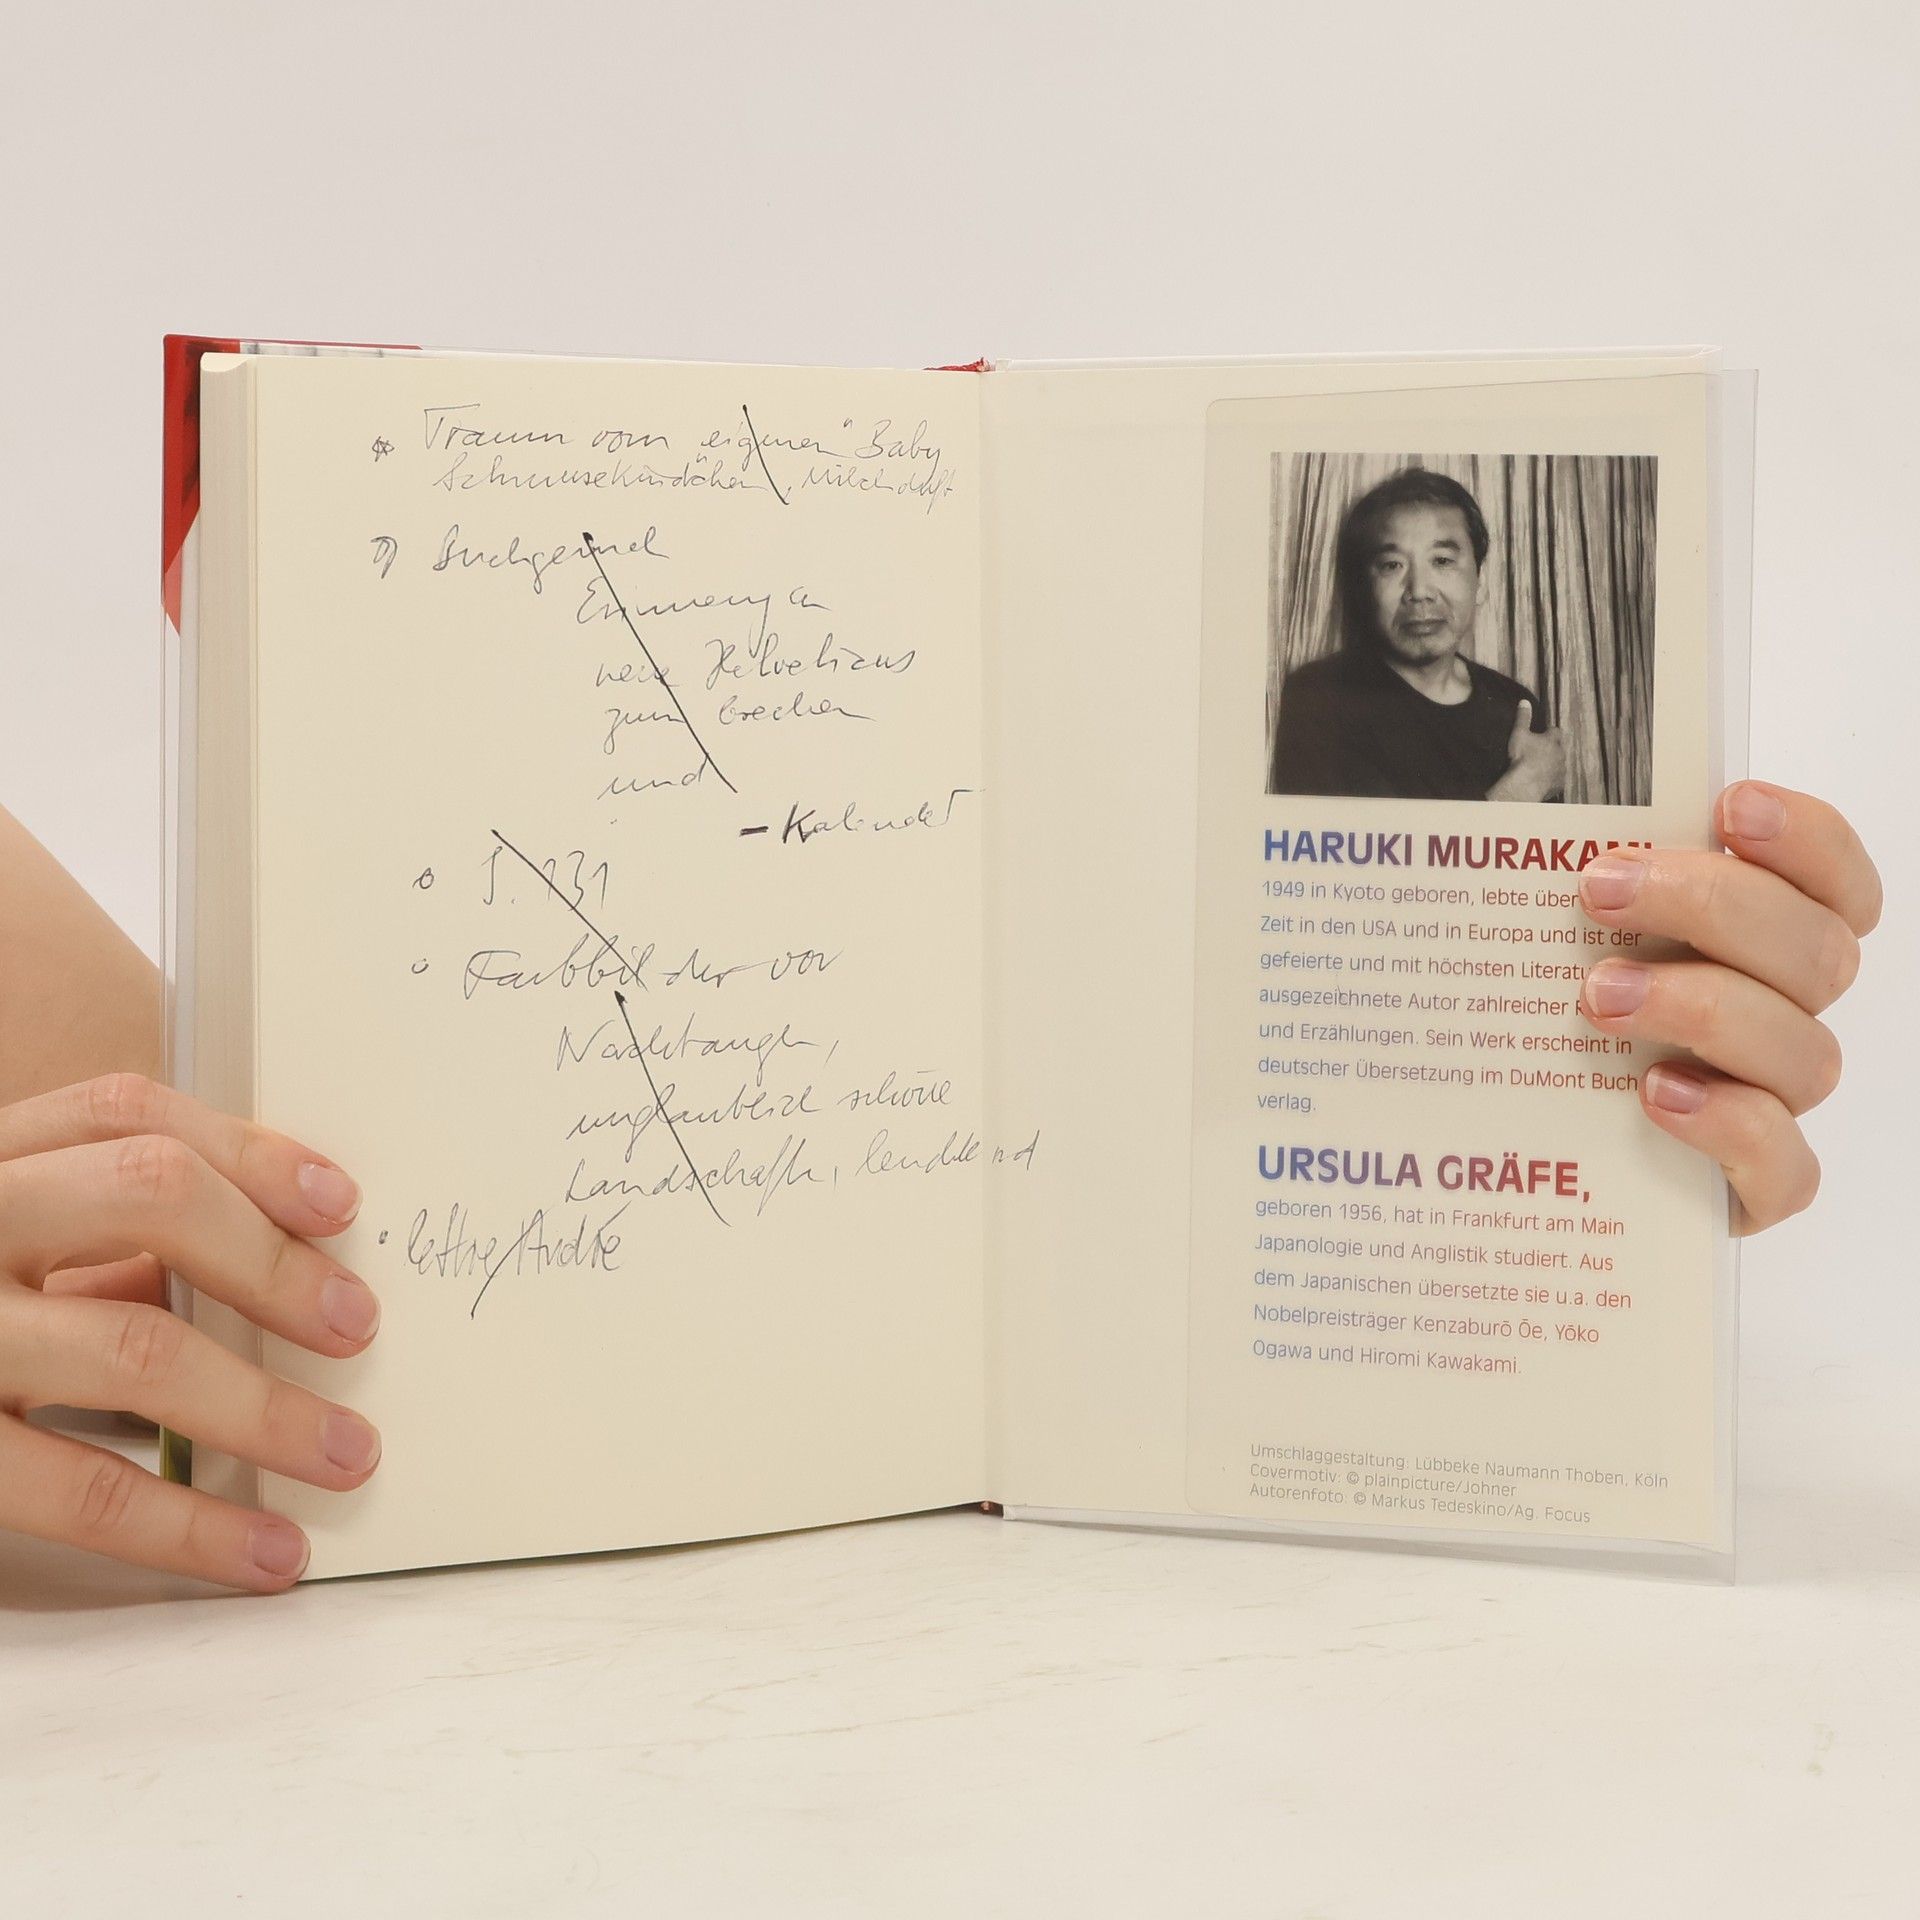 Traum vom "eigenen" Baby
Schmusekindchen, Milchduft
Buchgeruch
Erinnerung an
neue
zum brechen
und
- Kalender
S. 131
Farbbilder vor
unglaublich schöne
Landschaften, leuchtend
lettre André
HARUKI MURAKAMI
1949 in Kyoto geboren, lebte über
Zeit in den USA und in Europa und ist der
gefeierte und mit höchsten Literatu
ausgezeichnete Autor zahlreicher R
und Erzählungen. Sein Werk erscheint in
deutscher Übersetzung im DuMont Buch
verlag.
URSULA GRÄFE,
geboren 1956, hat in Frankfurt am Main
Japanologie und Anglistik studiert. Aus
dem Japanischen übersetzte sie u.a. den
Nobelpreisträger Kenzaburō Ōe, Yōko
Ogawa und Hiromi Kawakami.
Umschlaggestaltung: Lübbeke Naumann Thoben, Köln
Covermotiv: © plainpicture/Johner
Autorenfoto: © Markus Tedeskino/Ag. Focus